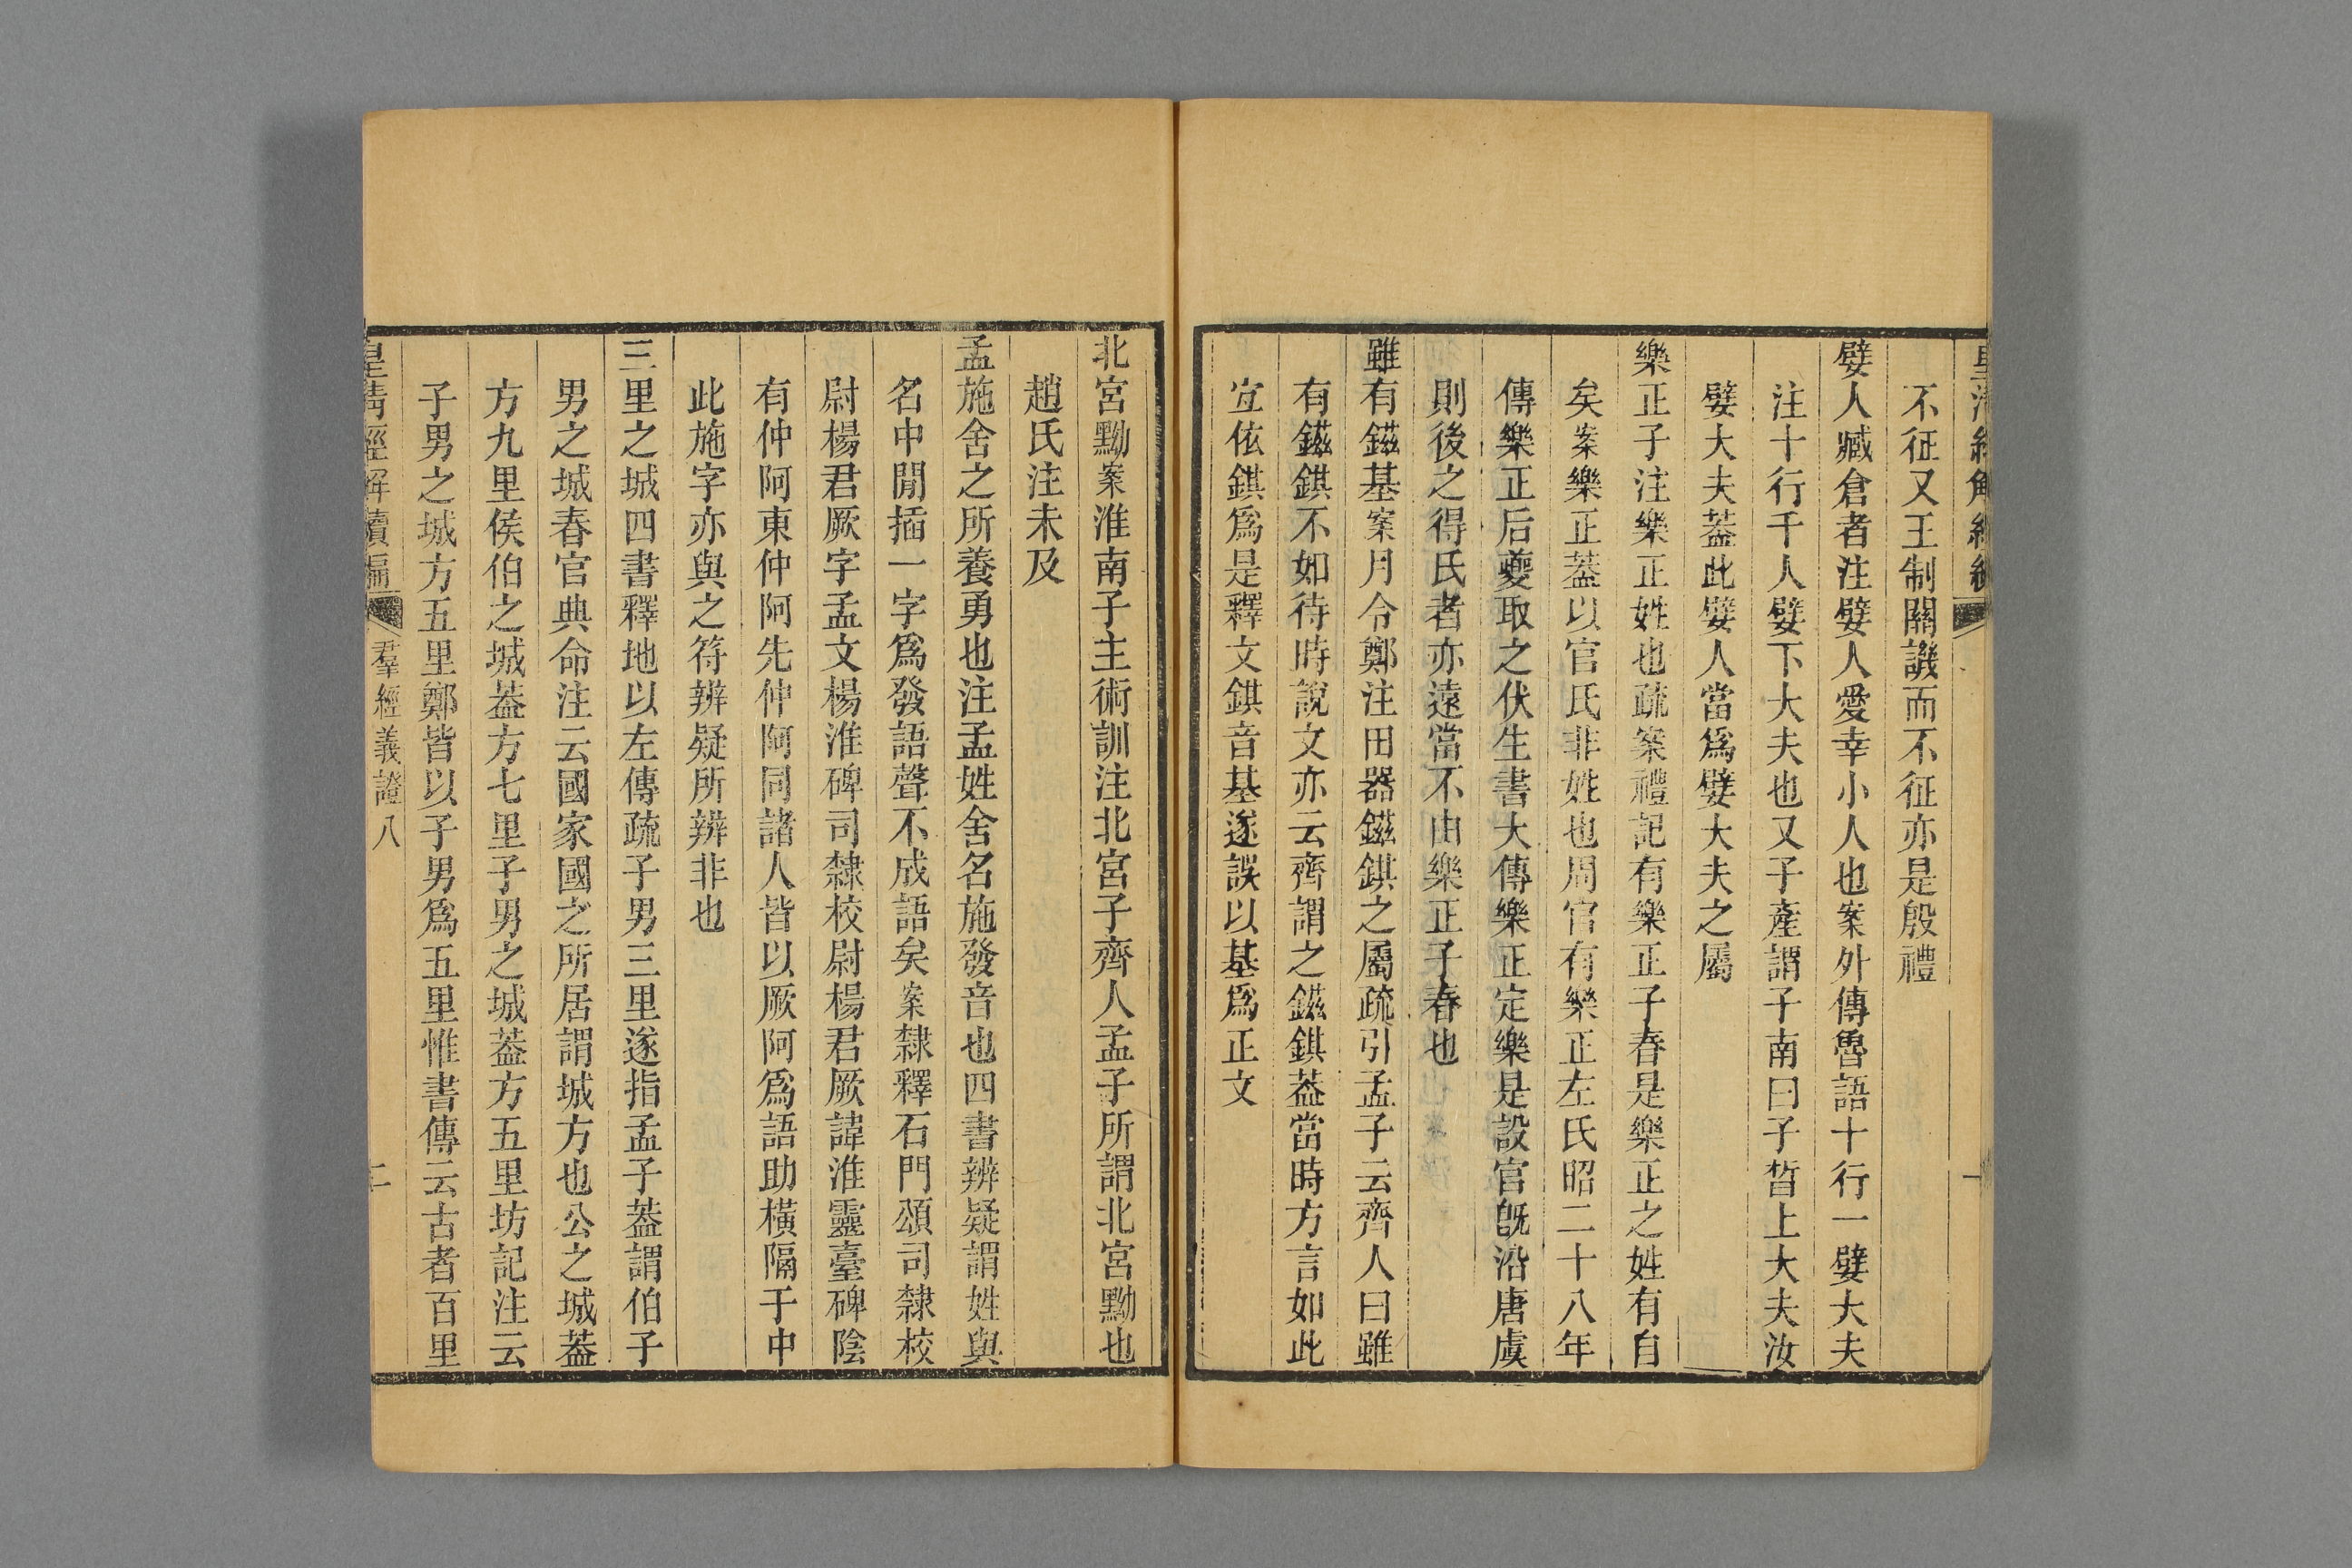 不征又王制關譏而不征亦是殷禮
嬖人臧倉者注嬖人愛幸小人也案外傳魯語十行一嬖大夫
注十行千人嬖下大夫也又子產謂子南曰子晳上大夫汝
嬖大夫葢此嬖人當爲嬖大夫之屬
樂正子注樂正姓也疏案禮記有樂正子春是樂正之姓有自
矣案樂正葢以官氏非姓也周官有樂正左氏昭二十八年
傳樂正后夔取之伏生書大傳樂正定樂是設官旣沿唐虞
則後之得氏者亦遠當不由樂正子春也
雖有鎡基案月令鄭注田器鎡錤之屬疏引孟子云齊人曰雖
有鎡錤不如待時說文亦云齊謂之鎡錤葢當時方言如此
宜依錤爲是釋文錤音基遂誤以基爲正文
北宮黝案淮南子主術訓注北宮子齊人孟子所謂北宮黝也
趙氏注未及
孟施舍之所養勇也注孟姓舍名施發音也四書辨疑謂姓與
名中閒插一字爲發語聲不成語矣案隸釋石門頌司隸校
尉楊君厥字孟文楊淮碑司隸校尉楊君厥諱淮靈臺碑陰
有仲阿東仲阿先仲阿同諸人皆以厥阿爲語助橫隔于中
此施字亦與之符辨疑所辨非也
三里之城四書釋地以左傳疏子男三里遂指孟子葢謂伯子
男之城春官典命注云國家國之所居謂城方也公之城葢
方九里侯伯之城葢方七里子男之城葢方五里坊記注云
子男之城方五里鄭皆以子男爲五里惟書傳云古者百里
皇清經解續編 羣經義證八 二